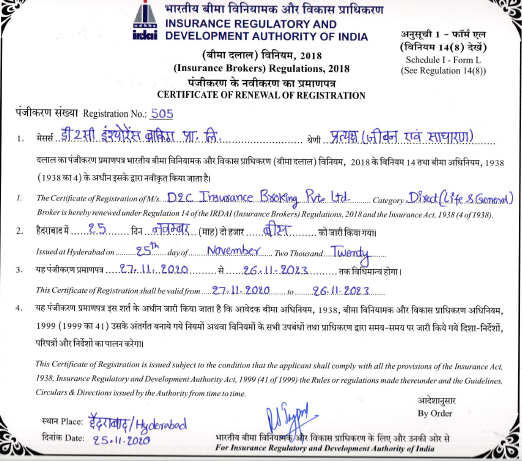 भारतीय बीमा विनियामक और विकास प्राधिकरण
INSURANCE REGULATORY AND
DEVELOPMENT AUTHORITY OF INDIA
irdai
(बीमा दलाल) विनियम, 2018
(Insurance Brokers) Regulations, 2018
पंजीकरण के नवीकरण का प्रमाणपत्र
CERTIFICATE OF RENEWAL OF REGISTRATION
अनुसूची 1 - फॉर्म एल
(विनियम 14(8) देखें)
Schedule I - Form L
(See Regulation 14(8))
पंजीकरण संख्या Registration No.: 505
1. मेसर्स डी2सी इंश्योरेंस ब्रोकिंग प्रा. लि. श्रेणी प्रत्यक्ष (जीवन एवं साधारण)
दलाल का पंजीकरण प्रमाणपत्र भारतीय बीमा विनियामक और विकास प्राधिकरण (बीमा दलाल) विनियम, 2018 के विनियम 14 तथा बीमा अधिनियम, 1938
(1938 का 4) के अधीन इसके द्वारा नवीकृत किया जाता है।
1. The Certificate of Registration of M/s. D2C Insurance Broking Pvt. Ltd. Category Direct (Life & General)
Broker is hereby renewed under Regulation 14 of the IRDAI (Insurance Brokers) Regulations, 2018 and the Insurance Act, 1938 (4 of 1938).
2. हैदराबाद में 25 दिन नवम्बर (माह) दो हजार बीस को जारी किया गया।
Issued at Hyderabad on 25th day of November Two Thousand Twenty
3. यह पंजीकरण प्रमाणपत्र 27.11.2020 से 26.11.2023 तक विधिमान्य होगा।
This Certificate of Registration shall be valid from 27.11.2020 to 26.11.2023
4. यह पंजीकरण प्रमाणपत्र इस शर्त के अधीन जारी किया जाता है कि आवेदक बीमा अधिनियम, 1938, बीमा विनियामक और विकास प्राधिकरण अधिनियम,
1999 (1999 का 41) उसके अंतर्गत बनाये गये नियमों अथवा विनियमों के सभी उपबंधों तथा प्राधिकरण द्वारा समय-समय पर जारी किये गये दिशा-निर्देशों,
परिपत्रों और निर्देशों का पालन करेगा।
This Certificate of Registration is issued subject to the condition that the applicant shall comply with all the provisions of the Insurance Act,
1938, Insurance Regulatory and Development Authority Act, 1999 (41 of 1999) the Rules or regulations made thereunder and the Guidelines,
Circulars & Directions issued by the Authority from time to time.
आदेशानुसार
By Order
स्थान Place: हैदराबाद/Hyderabad
दिनांक Date: 25.11.2020
भारतीय बीमा विनियामक और विकास प्राधिकरण के लिए और उनकी ओर से
For Insurance Regulatory and Development Authority of India